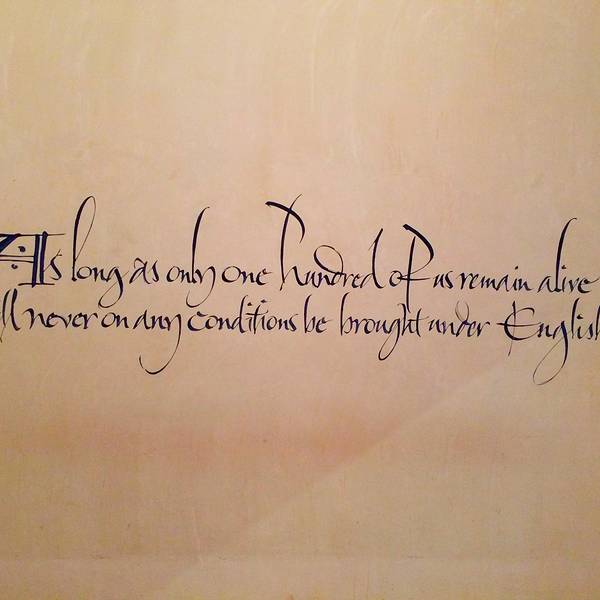 As long as only one hundred of us remain alive
ll never on any conditions be brought under English